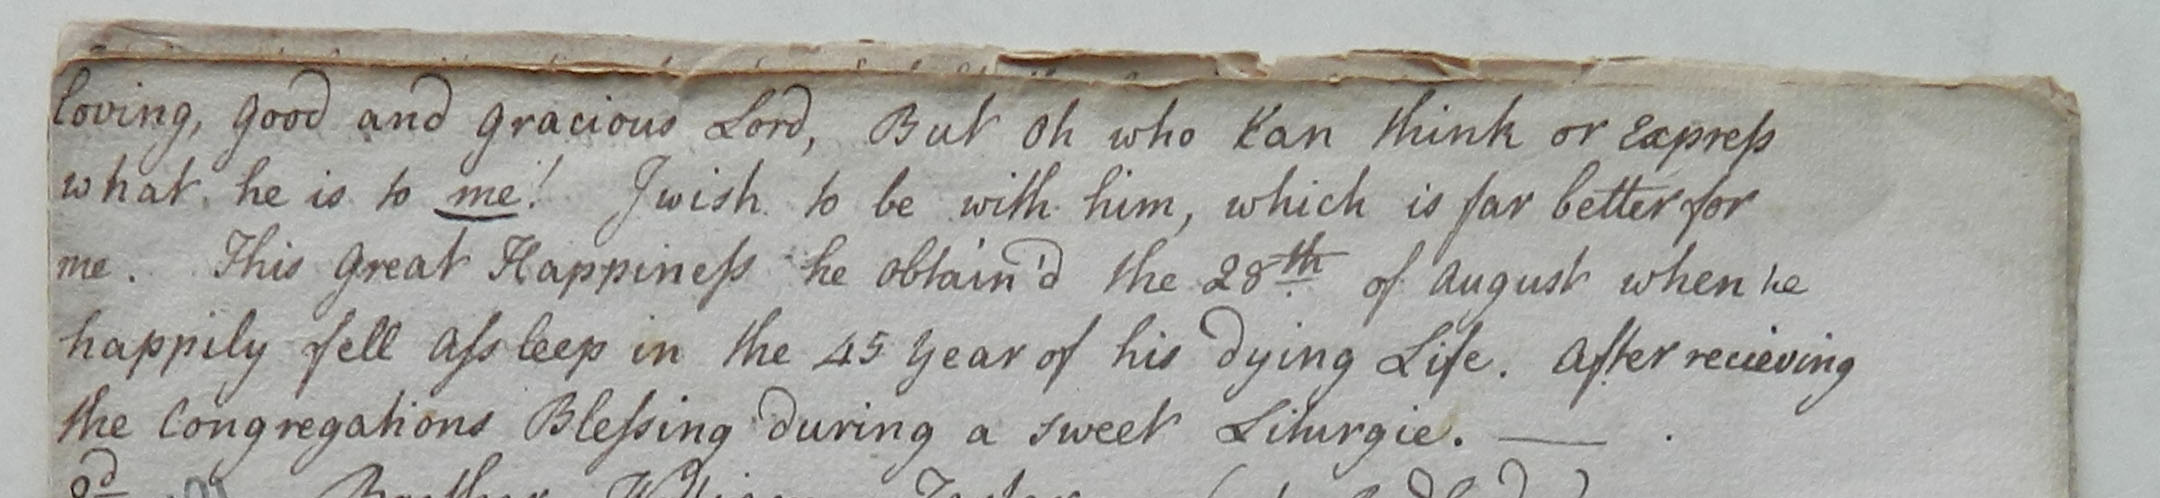 loving, good and gracious Lord, But oh who Kan think or Expreſs
what he is to me! I wish to be with him, which is far better for
me. This great Happineſs he obtain'd the 28th of August when he
happily fell Aſsleep in the 45 Year of his dying Life. After recieving
the Congregations Bleſsing during a sweet Liturgie. —— .
Brother William